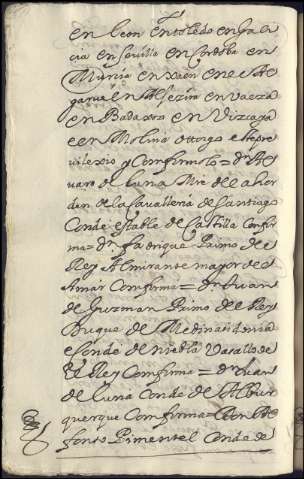 en leon en toledo en gali
cia en sevilla en Cordoba en
Murcia en xaen en el Al
garve en Algezira en vaeza
en Badaxos en Vizcaya
e en Molina otorgo este pre
vilexio y Comfirmolo = dn Al
varo de luna Mre de la hor
den de la Cavalleria de Santiago
Conde estable de Castilla Confir
ma = dn fadrique Primo de el
Rey Almirante mayor de la
mar Comfirma = dn Juan
de Guzman Primo de el Rey
Duque de Medina sidonia
e Conde de niebla Vasallo de
El Rey Comfirma = dn Juan
de luna Conde de Albur
querque Comfirma = Don Al
fonso Pimentel Conde de